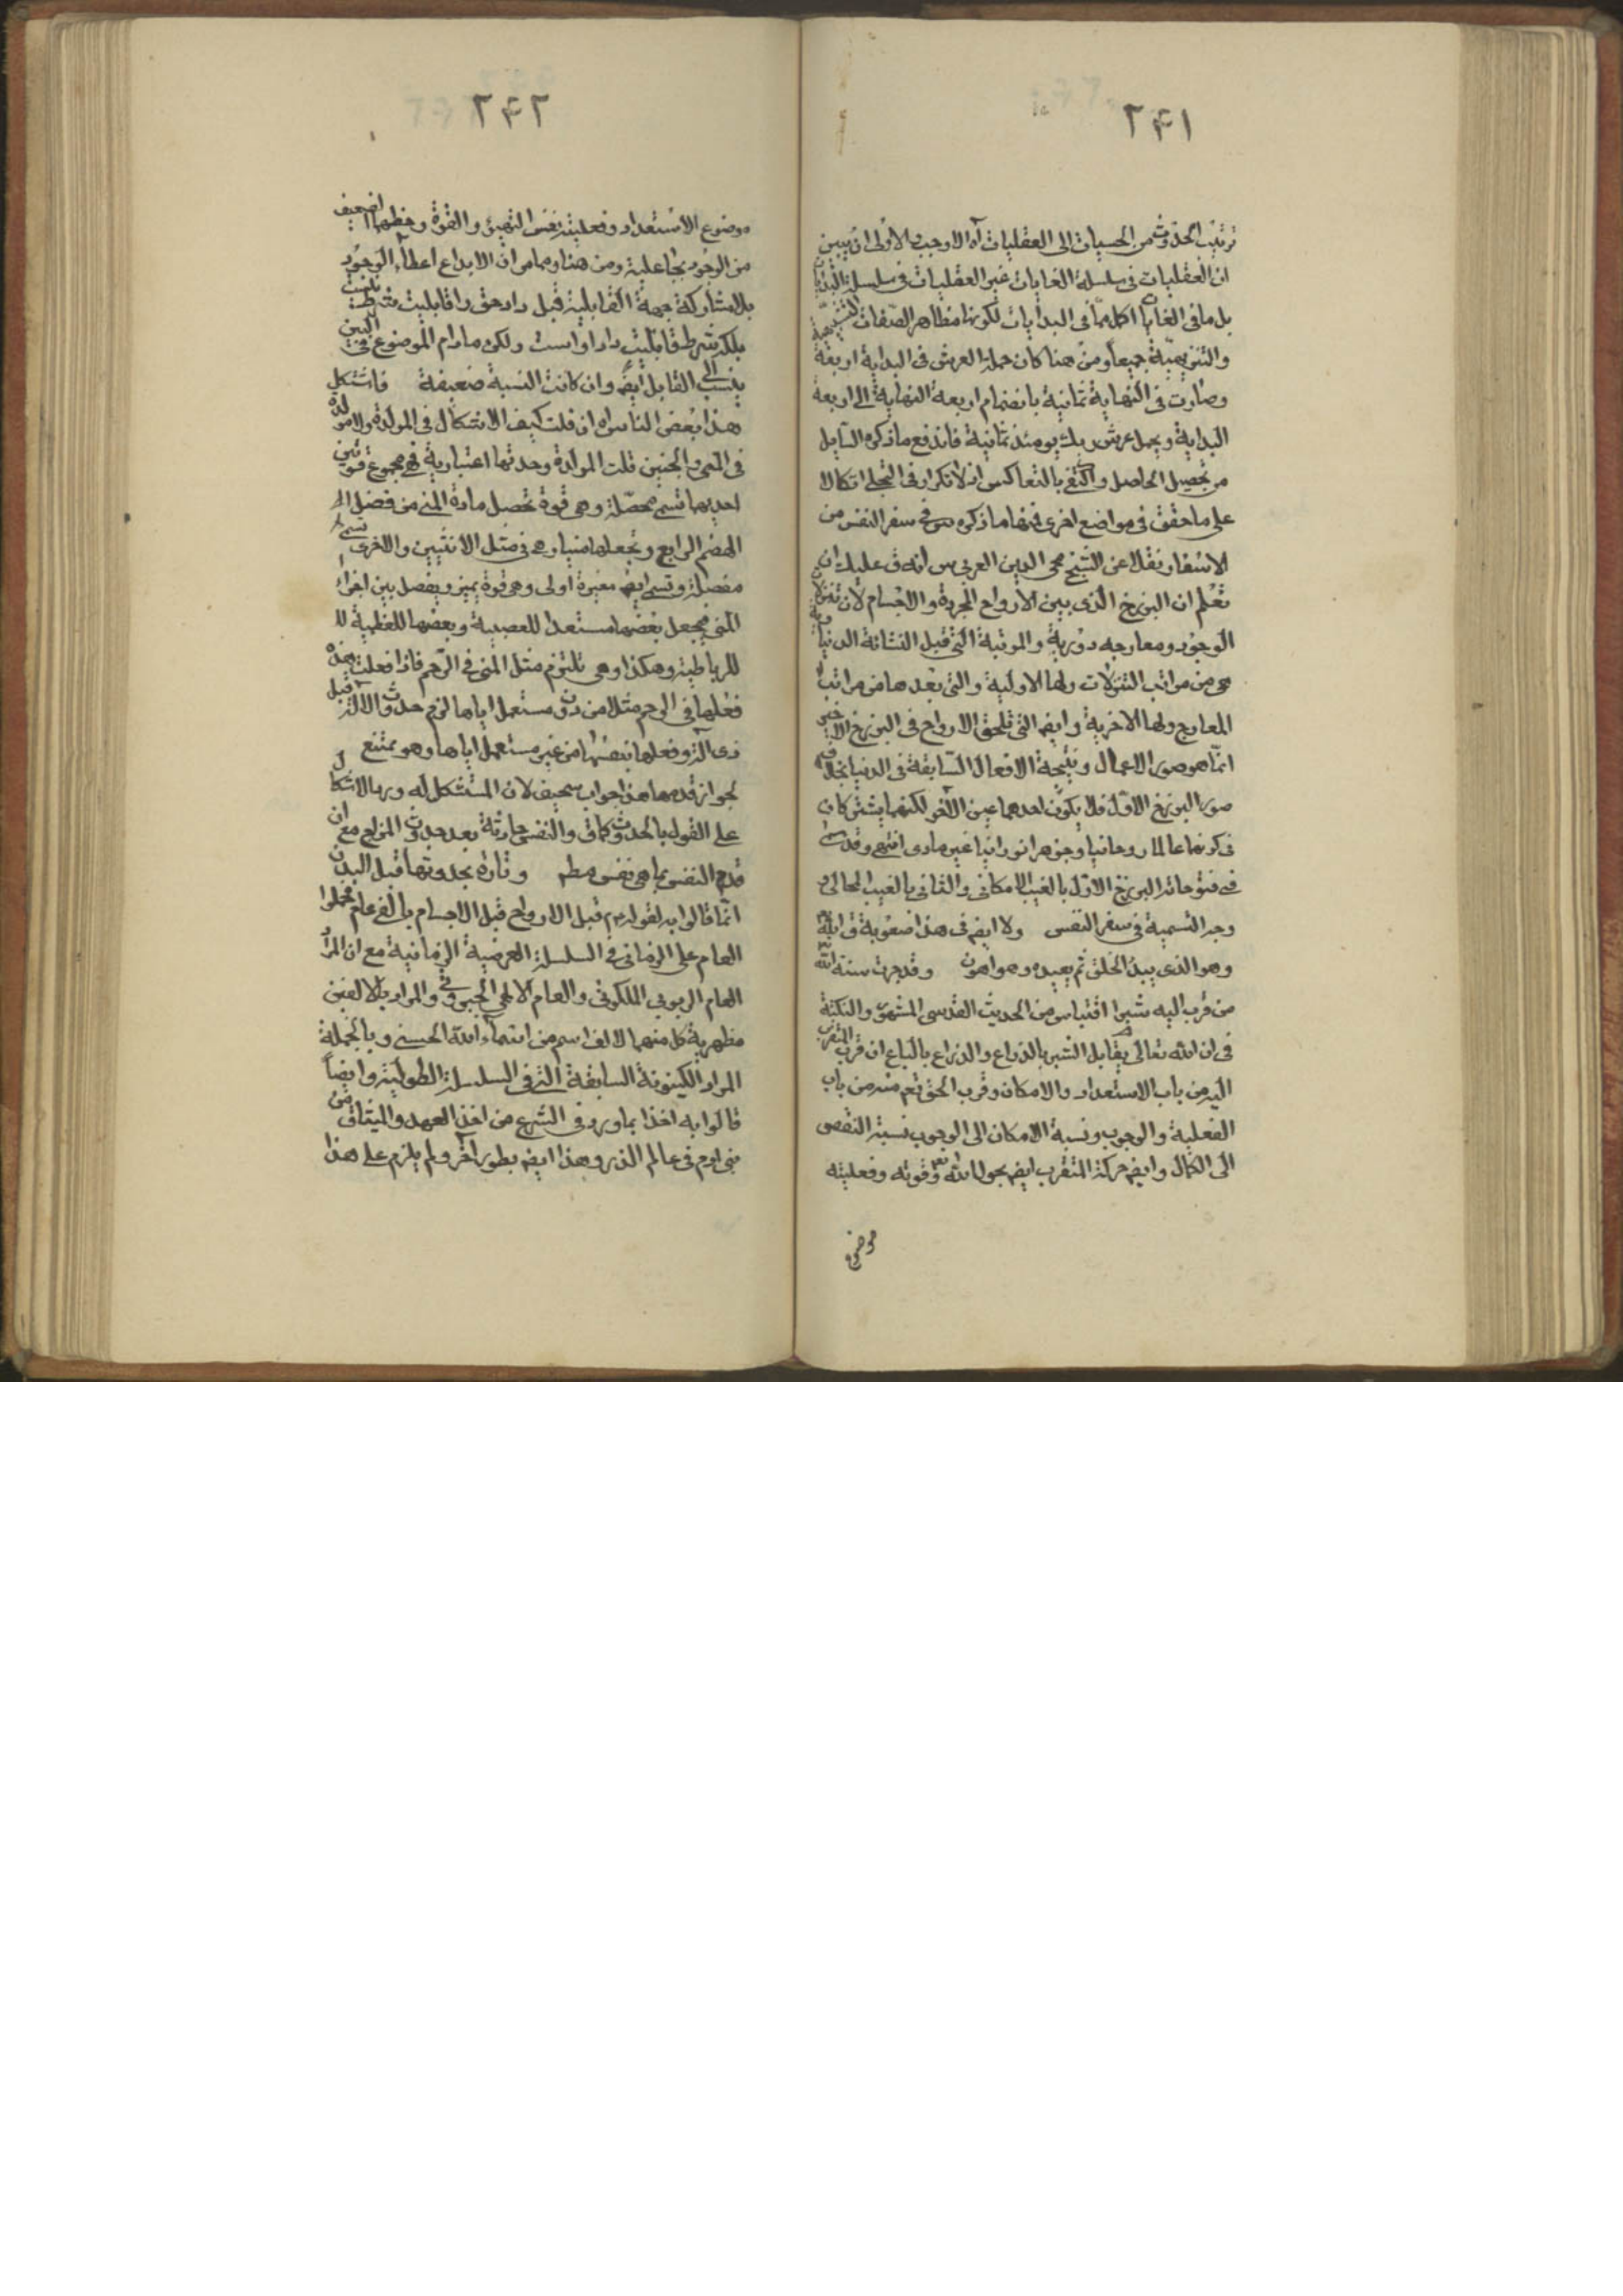 ٢٤١
ترتيب الحدوث من الحسيات الى العقليات آه الاوجب والاولى ان يبين
ان العقليات فى سلسلة الغايات غير العقليات فى سلسلة البدايات
بل ما فى الغايات اكمل مما فى البدايات لكونها مظاهر الصفات التشبيهية
والتنزيهية جميعا ومن هنا كان حملة العرش فى البداية اربعة
وصارت فى النهاية ثمانية بانضمام اربعة النهاية الى اربعة
البداية ويحمل عرش ربك يومئذ ثمانية فاندفع ما ذكره السايل
من تحصيل الحاصل واكتفى بالتعاكس اذ لا تكرار فى التجلى اتكالا
على ما حقق فى مواضع اخرى فمنها ما ذكره س فى سفر النفس من
الاسفار نقلا عن الشيخ محى الدين العربى س انه ق عليك ان
تعلم ان البرزخ الذى بين الارواح المجردة والاجسام لان تنزلات
الوجود ومعارجه دورية والمرتبة التى قبل النشاة الدنياوية
هى من مراتب التنزلات ولها الاولية والتى بعدها من مراتب
المعارج ولها الاخرية وايضا التى تلحق الارواح فى البرزخ الاخير
انما هو صور الاعمال ونتيجة الافعال السابقة فى الدنيا بخلاف
صور البرزخ الاول فلا يكون احدهما عين الآخر لكنهما يشتركان
فى كونهما عالما روحانيا وجوهرا نورانيا غير مادى انتهى وقد سمى
فى فتوحاته البرزخ الاول بالغيب الامكانى والثانى بالغيب المحالى و
وجه التسمية فى سفر النفس ولا ايضا فى هذا صعوبة ق الله تع
وهو الذى يبدؤ الخلق ثم يعيده وهو اهون وقد جرت سنة الله
من قرب اليه شبرا اقتباس من الحديث القدسى المشهور والنكتة
فى ان الله تعالى يقابل الشبر بالذراع والذراع بالباع ان قرب المتقرب
اليه من باب الاستعداد والامكان وقرب الحق تع منه من باب
الفعلية والوجوب ونسبة الامكان الى الوجوب نسبة النقص
الى الكمال وايضا حركة المتقرب ايضا بحول الله تع وقوته وفعليته
موضوع
٢٤٢
موضوع الاستعداد وفعليته نفس التهيؤ والقوة وحظهما ضعيف
من الوجود بجاعلية ومن هنا ومما مر ان الابداع اعطاء الوجود
بلا مشاركة جهة القابلية قيل داد حق را قابليت شرط نيست
بلكه شرط قابليت داد اوست ولكن ما دام الموضوع فى البين
ينسب الى القابل ايضا وان كانت النسبة ضعيفة فاستشكل
هذا بعض الناس اه ان قلت كيف الاشكال فى المولدة والامور
فى المنى والجنين قلت المولدة وحدتها اعتبارية فهى مجموع قوتين
احديهما تسمى محصلة وهى قوة تحصل مادة المنى من فضل
الهضم الرابع وتجعلها منيا وهى فى مثل الانثيين والاخرى تسمى
مفصلة وتسمى ايضا مغيرة اولى وهى قوة يميز ويفصل بين اجزاء
المنى فيجعل بعضها مستعدا للعصبية وبعضها للعظمية
للرباطية وهكذا وهى تلتزم مثل المنى فى الرحم فاذا فعلت هذه
فعلها فى الرحم مثلا من دون مستعمل اياها لزم حدوث الآلة قبل
ذى آلة وفعلها بنفسها من غير مستعمل اياها وهو ممتنع
لجواز قدمها هذا جواب سخيف لان المستشكل له ورد الاشكال
على القول بالحدوث كما ق والنفس حادثة بعد حدوث المزاج مع ان
قدم النفس بما هى نفس مطم وتارة بحدوثها قبل البدن
انما قالوا به لقوله ص قبل الارواح قبل الاجسام بالفى عام فحملوا
العام على الزمانى فى السلسلة العرضية الزمانية مع ان المراد
العام الربوبى الملكوتى والعام الالهى الجبروتى والمراد بالالفين
مظهرية كل منهما لالف اسم من اسماء الله الحسنى وبالجملة
المراد الكينونة السابقة التى فى السلسلة الطولية وايضاً
قالوا به اخذا بما ورد فى الشرع من اخذ العهد والميثاق من
بنى آدم فى عالم الذر وهذا ايضا بطور آخر ولم يلزم على هذا